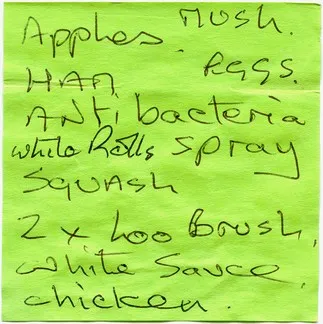 Apples. Mush.
HAM eggs.
ANti bacteria
white Rolls spray
Squash
2 x Loo Brush,
White Sauce
chicken.